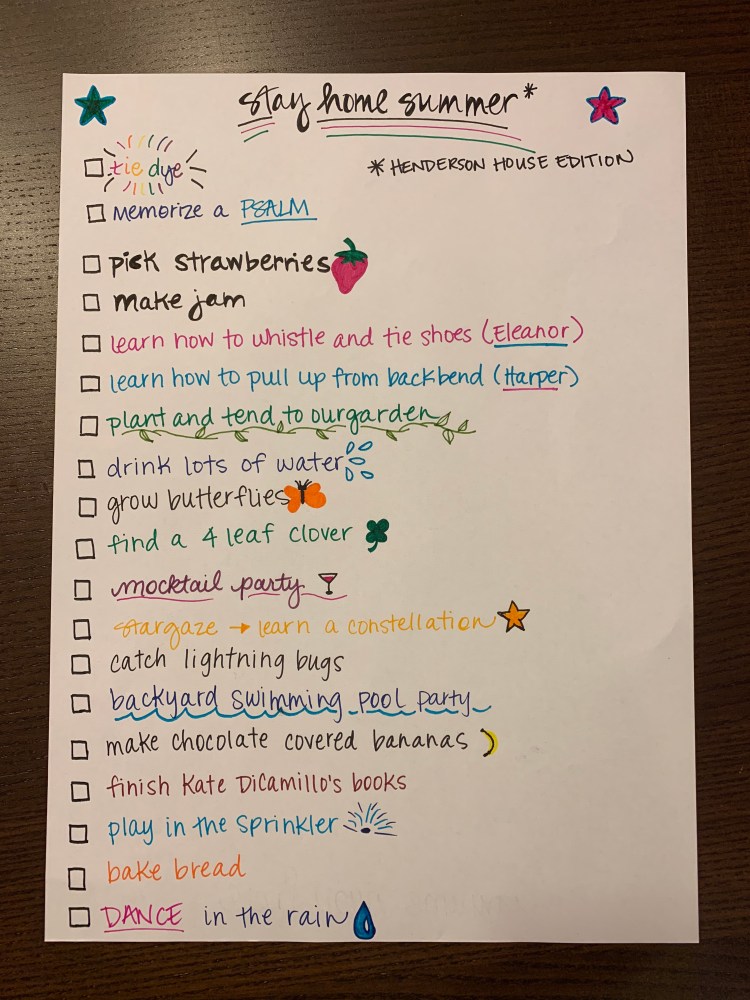 stay home summer*
* HENDERSON HOUSE EDITION
tie dye
memorize a PSALM
pick strawberries
make jam
learn how to whistle and tie shoes (Eleanor)
learn how to pull up from backbend (Harper)
plant and tend to our garden
drink lots of water
grow butterflies
find a 4 leaf clover
mocktail party
stargaze → learn a constellation
catch lightning bugs
backyard swimming pool party
make chocolate covered bananas
finish Kate DiCamillo's books
play in the sprinkler
bake bread
DANCE in the rain